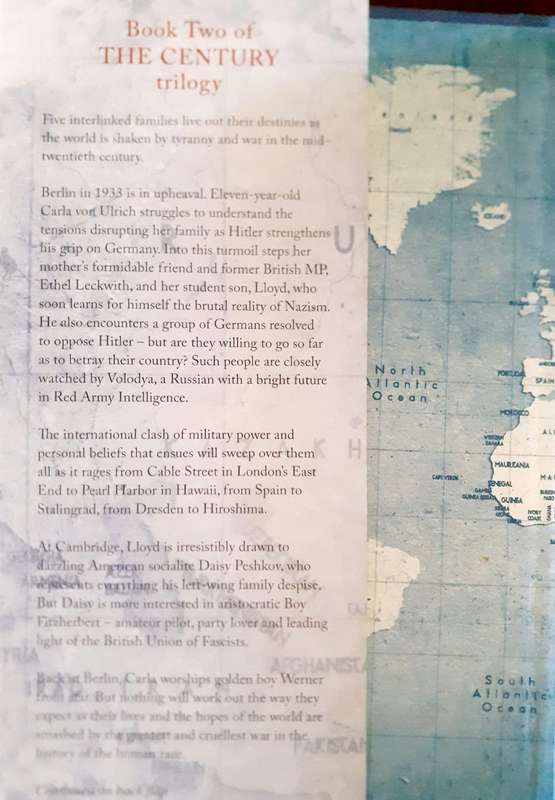 Book Two of
THE CENTURY
trilogy
Five interlinked families live out their destinies as
the world is shaken by tyranny and war in the mid-
twentieth century.
Berlin in 1933 is in upheaval. Eleven-year-old
Carla von Ulrich struggles to understand the
tensions disrupting her family as Hitler strengthens
his grip on Germany. Into this turmoil steps her
mother's formidable friend and former British MP,
Ethel Leckwith, and her student son, Lloyd, who
soon learns for himself the brutal reality of Nazism.
He also encounters a group of Germans resolved
to oppose Hitler – but are they willing to go so far
as to betray their country? Such people are closely
watched by Volodya, a Russian with a bright future
in Red Army Intelligence.
The international clash of military power and
personal beliefs that ensues will sweep over them
all as it rages from Cable Street in London's East
End to Pearl Harbor in Hawaii, from Spain to
Stalingrad, from Dresden to Hiroshima.
At Cambridge, Lloyd is irresistibly drawn to
dazzling American socialite Daisy Peshkov, who
represents everything his left-wing family despise.
But Daisy is more interested in aristocratic Boy
Fitzherbert – amateur pilot, party lover and leading
light of the British Union of Fascists.
Back in Berlin, Carla worships golden boy Werner
from afar. But nothing will work out the way they
expect as their lives and the hopes of the world are
smashed by the greatest and cruellest war in the
history of the human race.
Continued on back flap
U
K H
AFGHANISTA
PAKISTAN
ICELAND
North
Atlantic
Ocean
PORTUGAL
SPAIN
MOROCCO
WESTERN
SAHARA
AL
MAURITANIA
MA
CAPE VERDE
SENEGAL
GAMBIA
GUINEA BISSAU
GUINEA
SIERRA
LEONE
IVORY
COAST
GHANA
South
Atlantic
Ocean